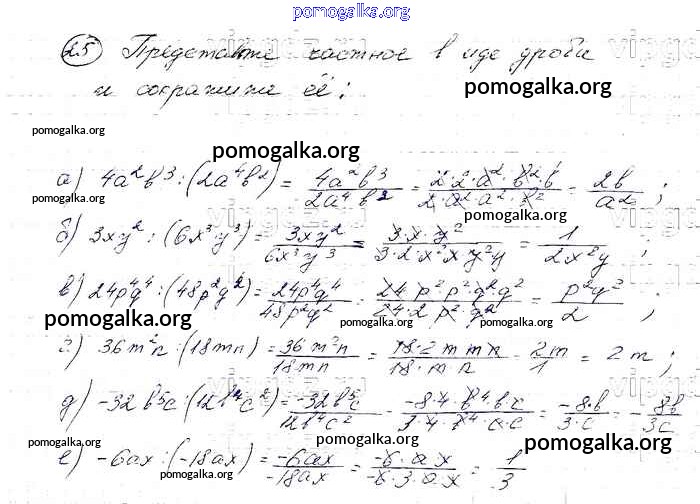 pomogalka.org
25 Представьте частное в виде дроби
и сократите её:
pomogalka.org
pomogalka.org
pomogalka.org
а) 4a²b³ : (2a⁴b²) = 4a²b³/2a⁴b² = 2·2·a²·b²·b/2·a²·a²·b² = 2b/a² ;
pomogalka.org
pomogalka.org
б) 3xy² : (6x³y³) = 3xy²/6x³y³ = 3·x·y²/3·2·x²·x·y²y = 1/2x²y ;
в) 24p⁴q⁴ : (48p²q²) = 24p⁴q⁴/48p²q² = 24·p²p²·q²q²/24·2·p²·q² = p²q²/2 ;
pomogalka.org
pomogalka.org
pomogalka.org
г) 36m²n : (18mn) = 36m²n/18mn = 18·2·m·m·n/18·m·n = 2m/1 = 2m ;
д) -32b⁵c : (12b⁴c²) = -32b⁵c/12b⁴c² = -8·4·b⁴·b·c/3·4·b⁴·c·c = -8·b/3·c = -8b/3c
pomogalka.org
pomogalka.org
pomogalka.org
е) -6ax : (-18ax) = -6ax/-18ax = -6·a·x/-6·3·a·x = 1/3